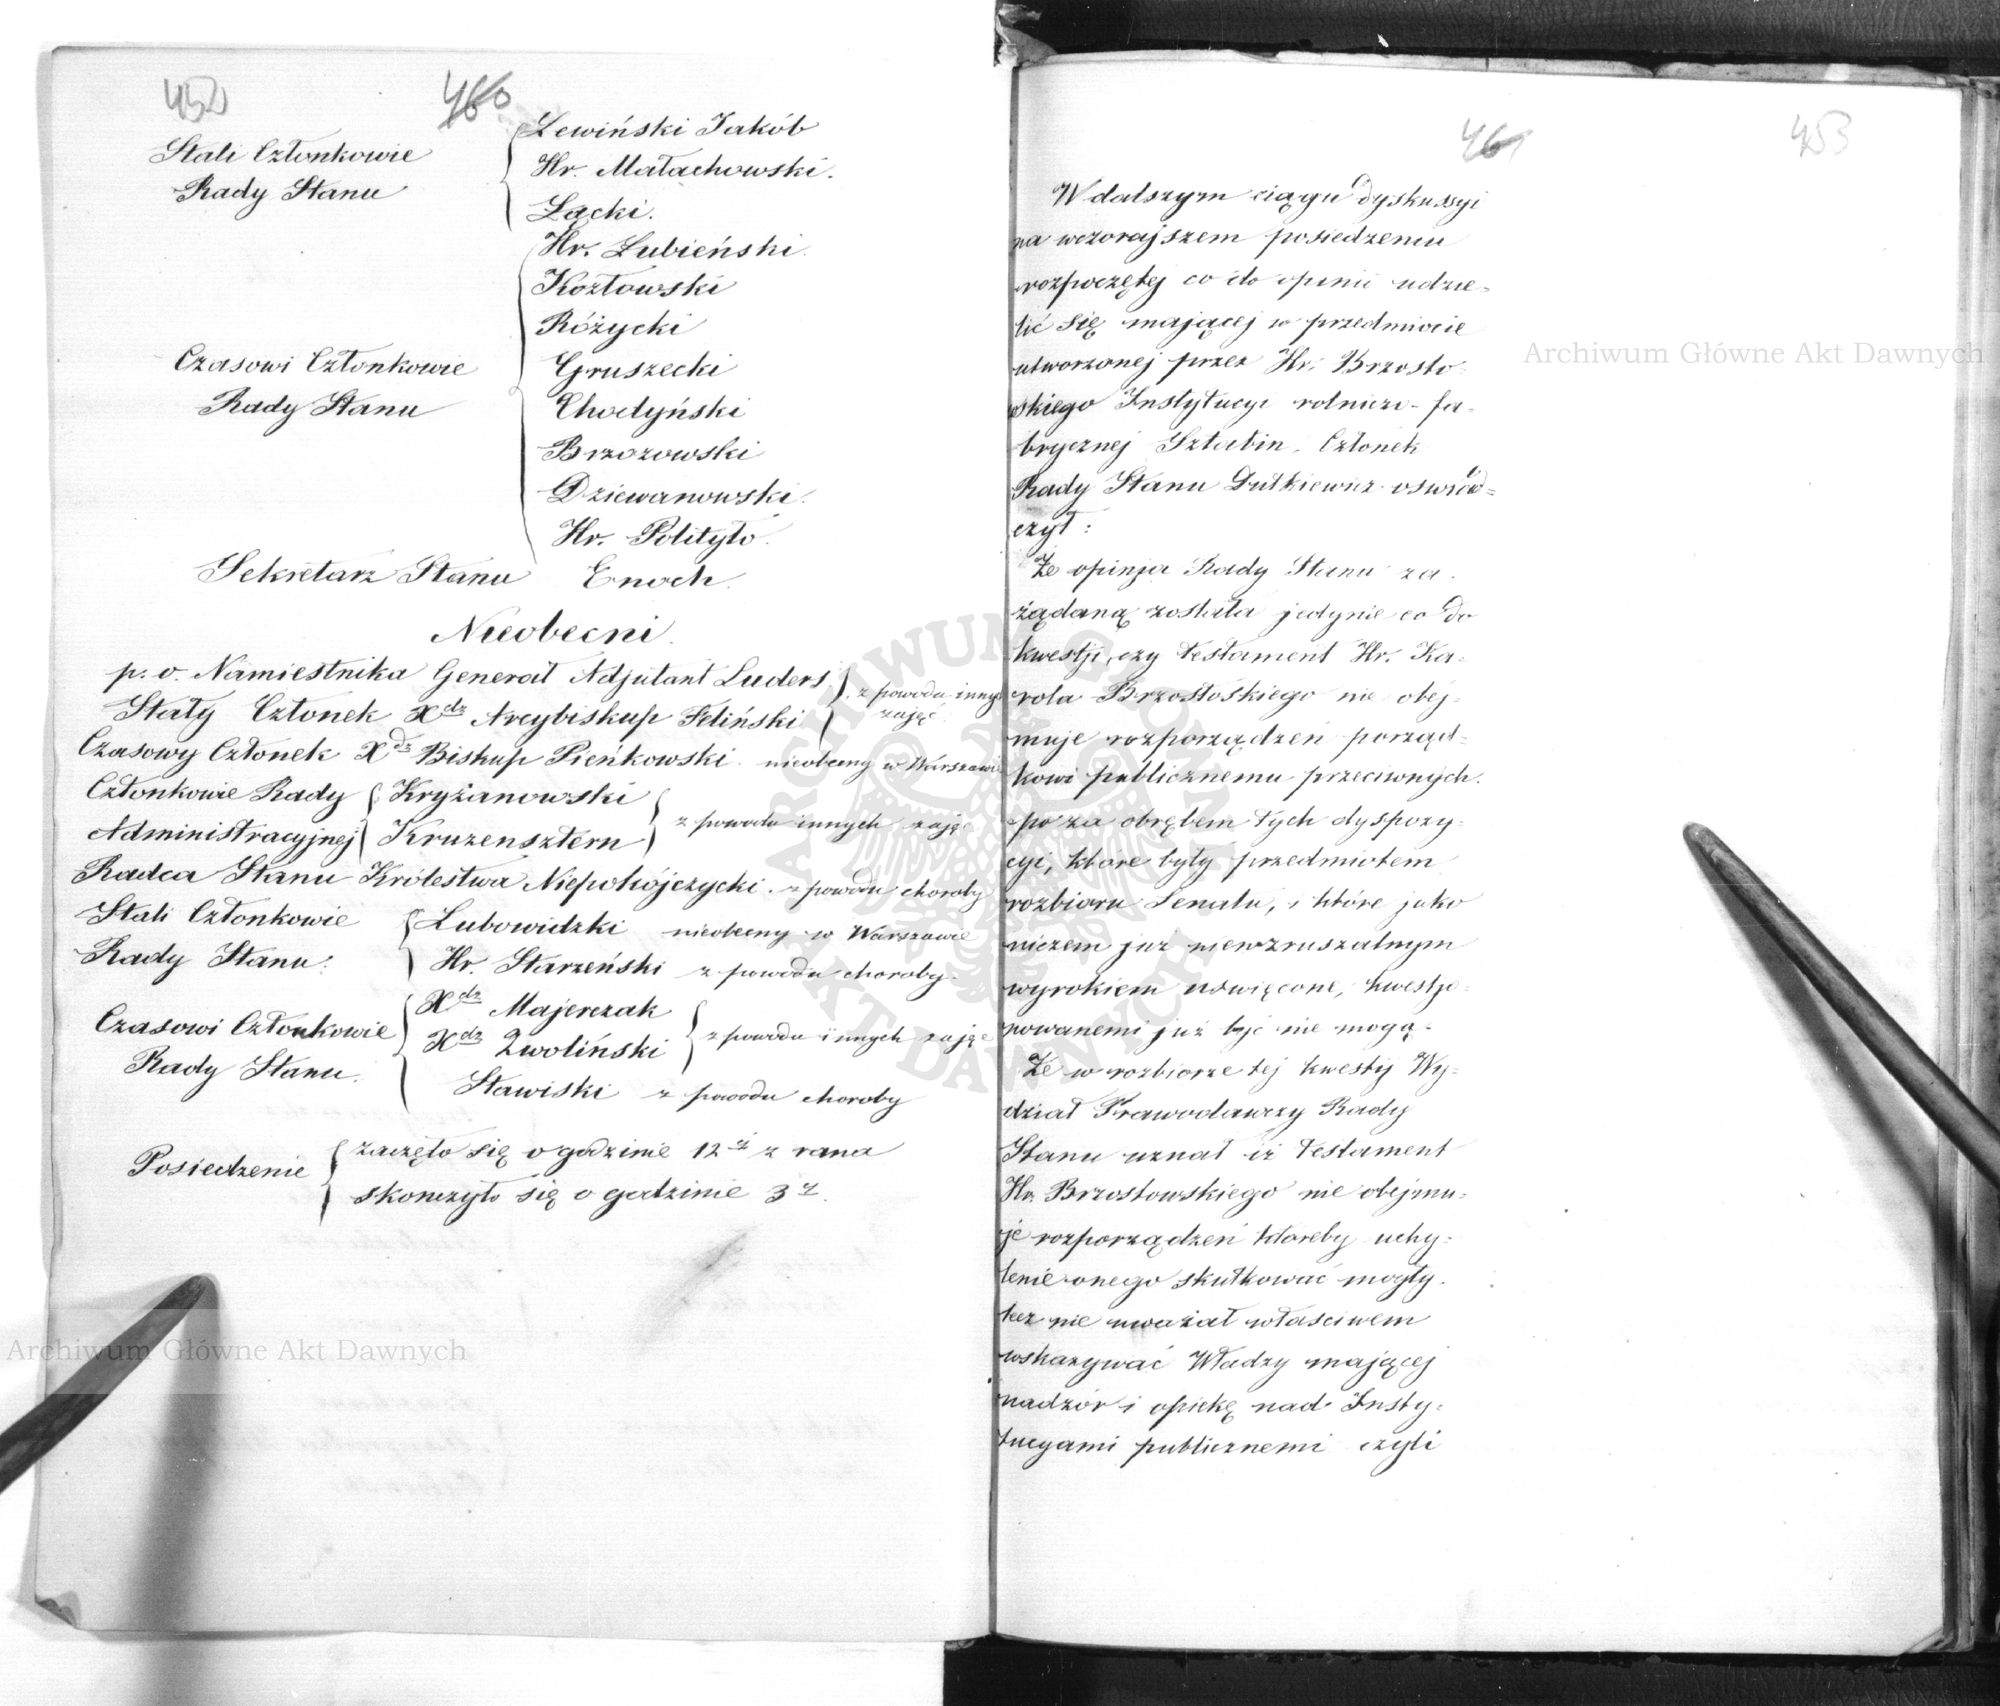 452
460
Lewiński Jakób
Stali Członkowie
Hr. Małachowski.
Rady Stanu
Łącki.
Hr. Łubieński.
Kozłowski
Różycki
Czasowi Członkowie
Gruszecki
Rady Stanu
Chodyński
Brzozowski
Dziewanowski.
Hr. Polityło.
Sekretarz Stanu Enoch.
Nieobecni.
p. o. Namiestnika Generał Adjutant Luders
z powodu innych
zajęć.
Stały Członek Xdz Arcybiskup Feliński
Czasowy Członek Xdz Biskup Pieńkowski. nieobecny w Warszawie
Członkowie Rady Kryżanowski
Administracyjnej Kruzensztern z powodu innych zajęć
Radca Stanu Królestwa Niepokójczycki. z powodu choroby
Stali Członkowie Lubowidzki nieobecny w Warszawie
Rady Stanu: Hr. Starzeński z powodu choroby
Xdz Majerczak
Czasowi Członkowie
Xdz Zwoliński z powodu innych zajęć
Rady Stanu.
Stawiski z powodu choroby
Posiedzenie
zaczęło się o godzinie 12éj z rana
skończyło się o godzinie 3éj.
461
453
W dalszym ciągu dyskussyi
na wczorajszem posiedzeniu
rozpoczętej co do opinii udzie=
lić się mającej w przedmiocie
utworzonej przez Hr. Brzosto-
wskiego Instytucyi rolniczo-fa-
brycznej Sztabin. Członek
Rady Stanu Dutkiewicz oświad=
czył:
Że opinja Rady Stanu za-
żądaną została jedynie co do
kwestji, czy testament Hr. Ka=
rola Brzostoskiego nie obej-
muje rozporządzeń porząd=
kowi publicznemu przeciwnych.
po za obrębem tych dyspozy-
cyi, które były przedmiotem
rozbioru Senatu, i które jako
niczem już niewzruszalnym
wyrokiem uświęcone, kwestjo-
nowanemi już być nie mogą.
Że w rozbiorze tej kwestij Wy-
dział Prawodawczy Rady
Stanu uznał iż testament
Hr. Brzostowskiego nie obejmu=
je rozporządzeń któreby uchy=
lenie onego skutkować mogły.
lecz nie uważał właściwem
wskazywać Władzy mającej
nadzór i opiekę nad Insty=
tucyami publicznemi czyli
Archiwum Główne Akt Dawnych
Archiwum Główne Akt Dawnych
ARCHIWUM GŁÓWNE AKT DAWNYCH